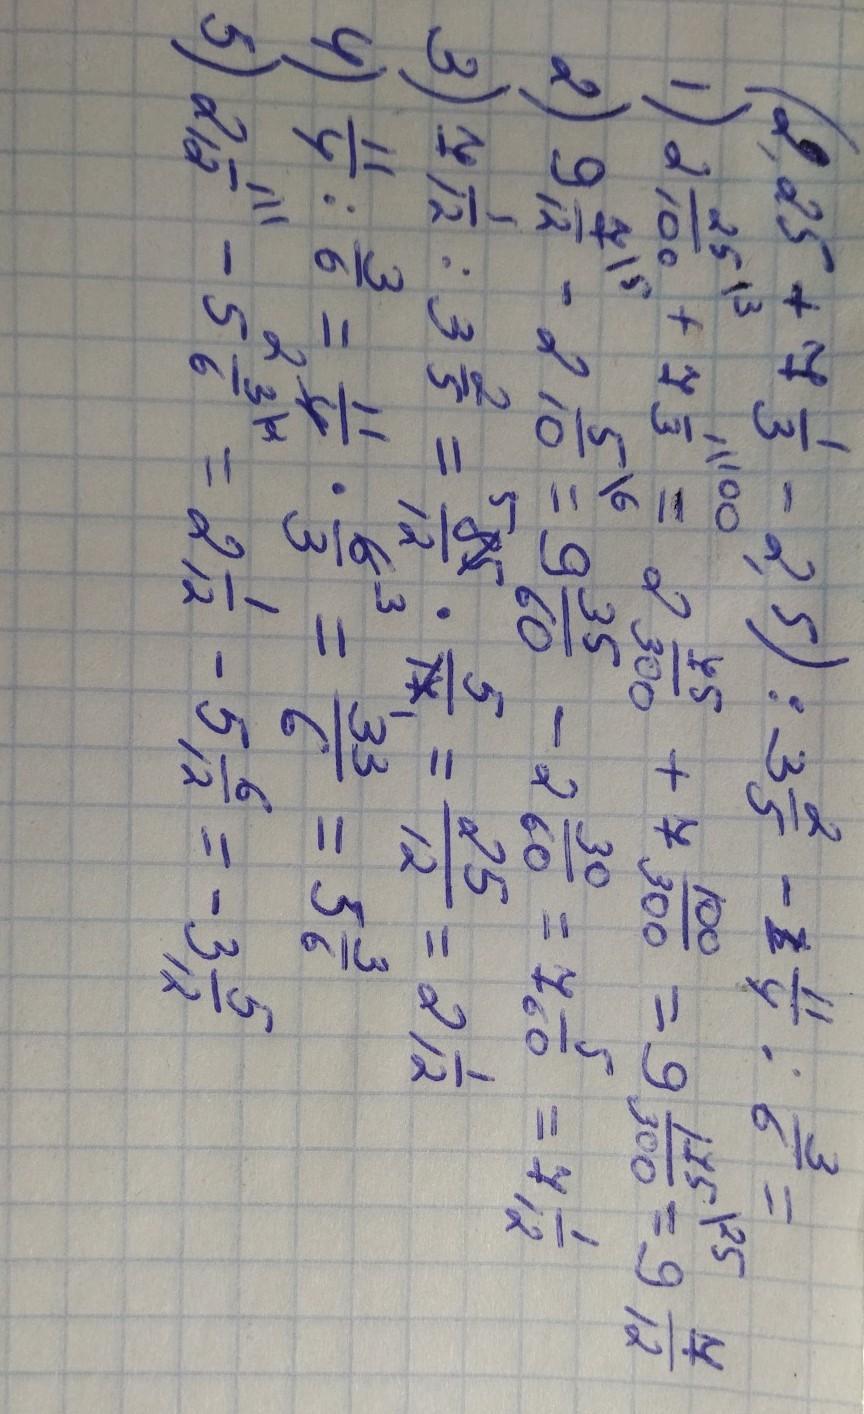 (2,25 + 7 1/3 - 2,5) : 3 2/5 - 11/4 : 3/6 =
1) 2 25\3/100 + 7 1\100/3 = 2 75/300 + 7 100/300 = 9 175\25/300 = 9 7/12
2) 9 7\5/12 - 2 5\6/10 = 9 35/60 - 2 30/60 = 7 5/60 = 7 1/12
3) 7 1/12 : 3 2/5 = 85/12 · 5/17 = 25/12 = 2 1/12
4) 11/4 : 3/6 = 11/4 · 6/3 = 33/6 = 5 3/6
5) 2 1\1/12 - 5 3\2/6 = 2 1/12 - 5 6/12 = -3 5/12